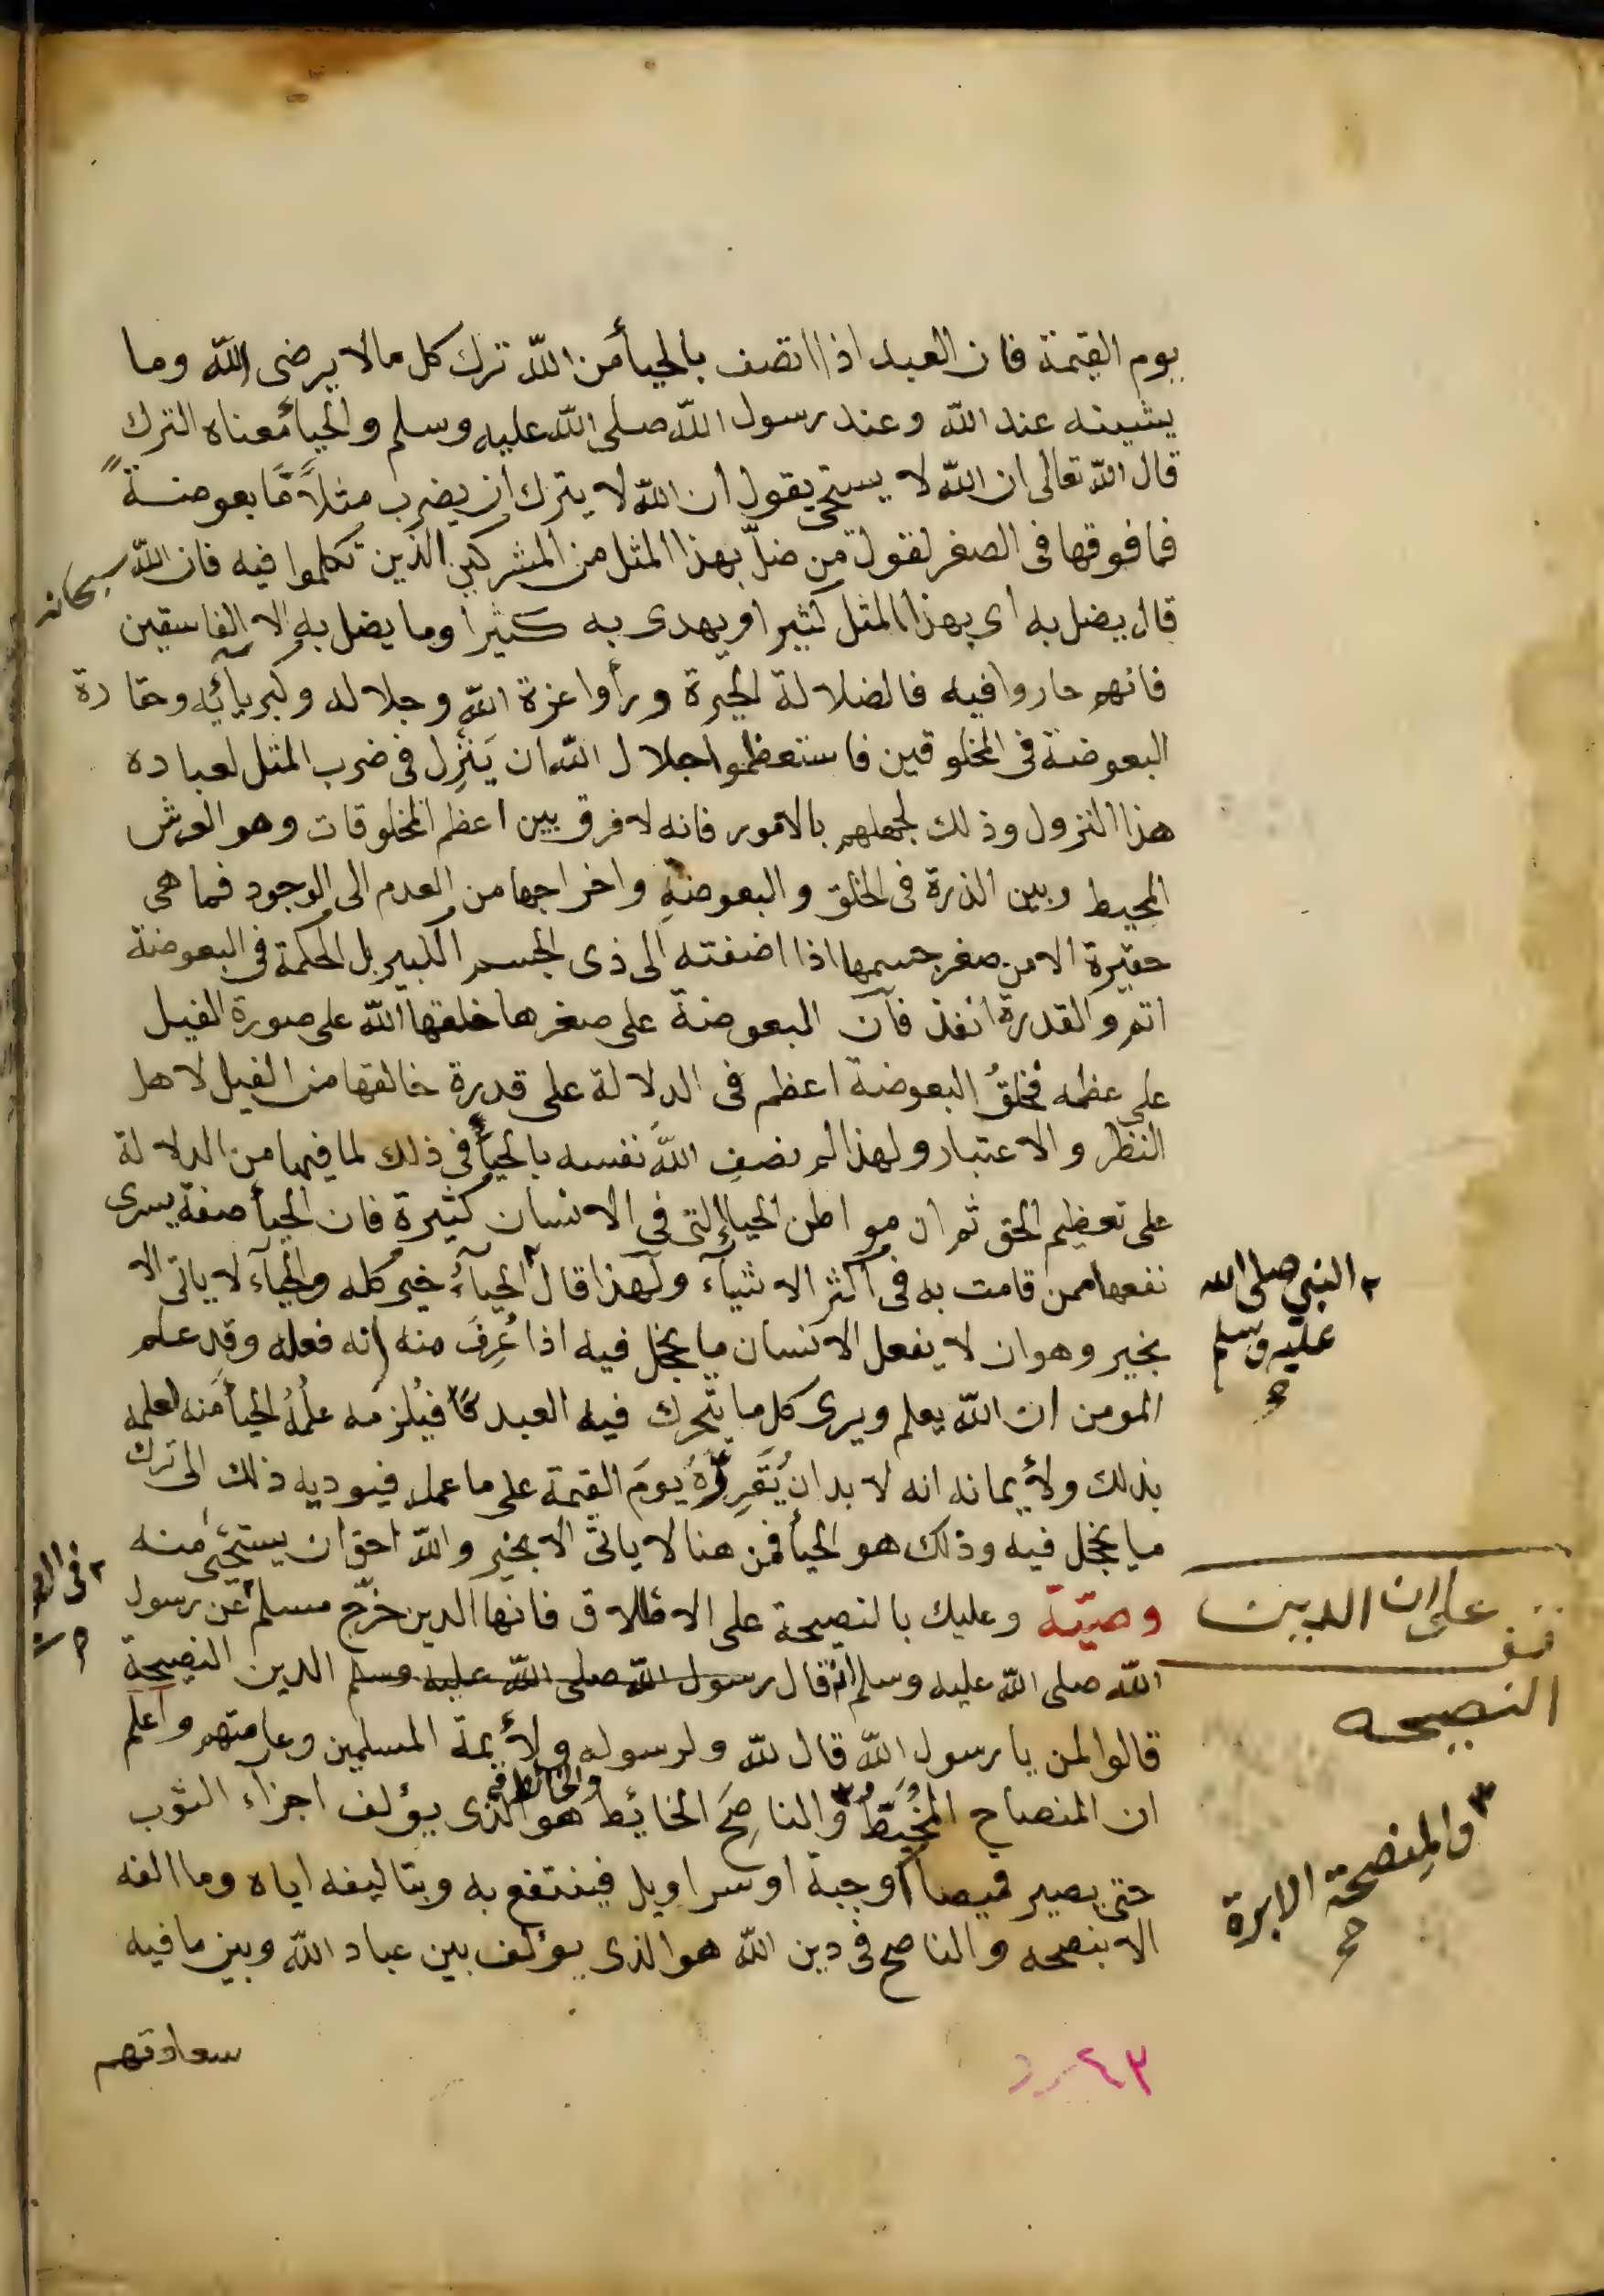 يوم القيمة فان العبد اذا اتصف بالحيأ من الله ترك كل ما لا يرضى الله وما
يشينه عند الله وعند رسول الله صلى الله عليه وسلم والحيأ معناه الترك
قال الله تعالى ان الله لا يستحى يقول ان الله لا يترك ان يضرب مثلاً مّا بعوضةً
فما فوقها فى الصغر لقول من ضلّ بهذا المثل من المشركين الذين تكلموا فيه فان الله سبحانه
قال يضل به اى بهذا المثل كثيرا ويهدى به كثيرا وما يضل به الا الفاسقين
فانهم حاروا فيه فالضلالة الحيرة ورأوا عزة الله وجلاله وكبريائه وحقارة
البعوضة فى المخلوقين فاستعظموا جلال الله ان يَنْزِل فى ضرب المثل لعباده
هذا النزول وذلك لجهلهم بالامور فانه لا فرق بين اعظم المخلوقات وهو العرش
المحيط وبين الذرة فى الخلق والبعوضةِ واخراجها من العدم الى الوجود فما هى
حقيرة الا من صغر جسمها اذا اضفته الى ذى الجسم الكبير بل الحكمة فى البعوضة
اتم والقدرة انفذ فان البعوضة على صغرها خلقها الله على صورة الفيل
على عظمه فخلقُ البعوضة اعظم فى الدلالة على قدرة خالقها من الفيل لاهل
النظر والاعتبار ولهذا لم يصفِ اللهُ نفسه بالحيأ فى ذلك لما فيها من الدلالة
على تعظيم الحق ثم ان مواطن الحياء التى فى الانسان كثيرة فان الحيأ صفة يسرى
نفعها ممن قامت به فى اكثر الاشياء ولهذا قال ٢ الحيآءُ خير كله والحيآء لا ياتى الا
٢ النبي صلى الله
عليه وسلم
صح
بخير وهو ان لا يفعل الانسان ما يخجل فيه اذا عُرِفَ منه انه فعله وقد علم
المومن ان الله يعلم ويرى كل ما يتحرك فيه العبد فيُلزمه علمُه الحيأَ منه لعلمه
بذلك ولأيمانه انه لا بد ان يُقَرِّرَهُ يومَ القيمة على ما عمل فيوديه ذلك الى ترك
ما يخجل فيه وذلك هو الحيأ فمن هنا لا ياتى الا بخير والله احق ان يستحيى منه
وصيّة وعليك بالنصيحة على الاطلاق فانها الدين خرّج مسلم ٢ عن رسول
على ان الدين
النصيحه
الله صلى الله عليه وسلم انه قال رسول الله صلى الله عليه وسلم الدين النصيحة
قالوا لمن يا رسول الله قال لله ولرسوله ولأيمة المسلمين وعامتهم واعلم
ان المنصاح المُخَيَّطُ ٣ والناصِحَ الخايط والخائط هو الذى يؤلف اجزاء الثوب
٣ والمِنصحة الابرة
صح
حتى يصير قميصاً او جبة او سراويل فينتفع به وبتاليفه اياه وما الفه
الا بنصحه والناصح فى دين الله هو الذى يؤلف بين عباد الله وبين ما فيه
سعادتهم